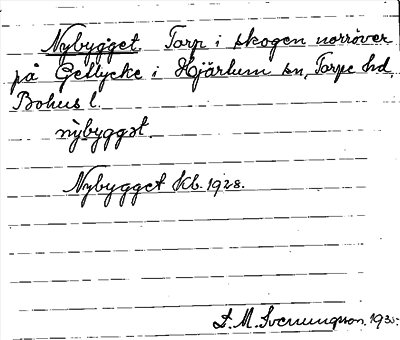 Nybygget. Torp i skogen norröver
på Gellycke i Hjärtum sn, Torpe hd,
Bohus l.
nỳbyggət.
Nybygget Kb. 1928.
D. M. Svenungsson. 1930.